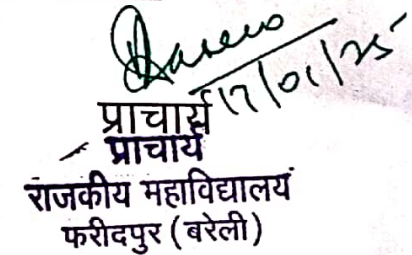 17/01/25
प्राचार्य
प्राचार्य
राजकीय महाविद्यालय
फरीदपुर (बरेली)